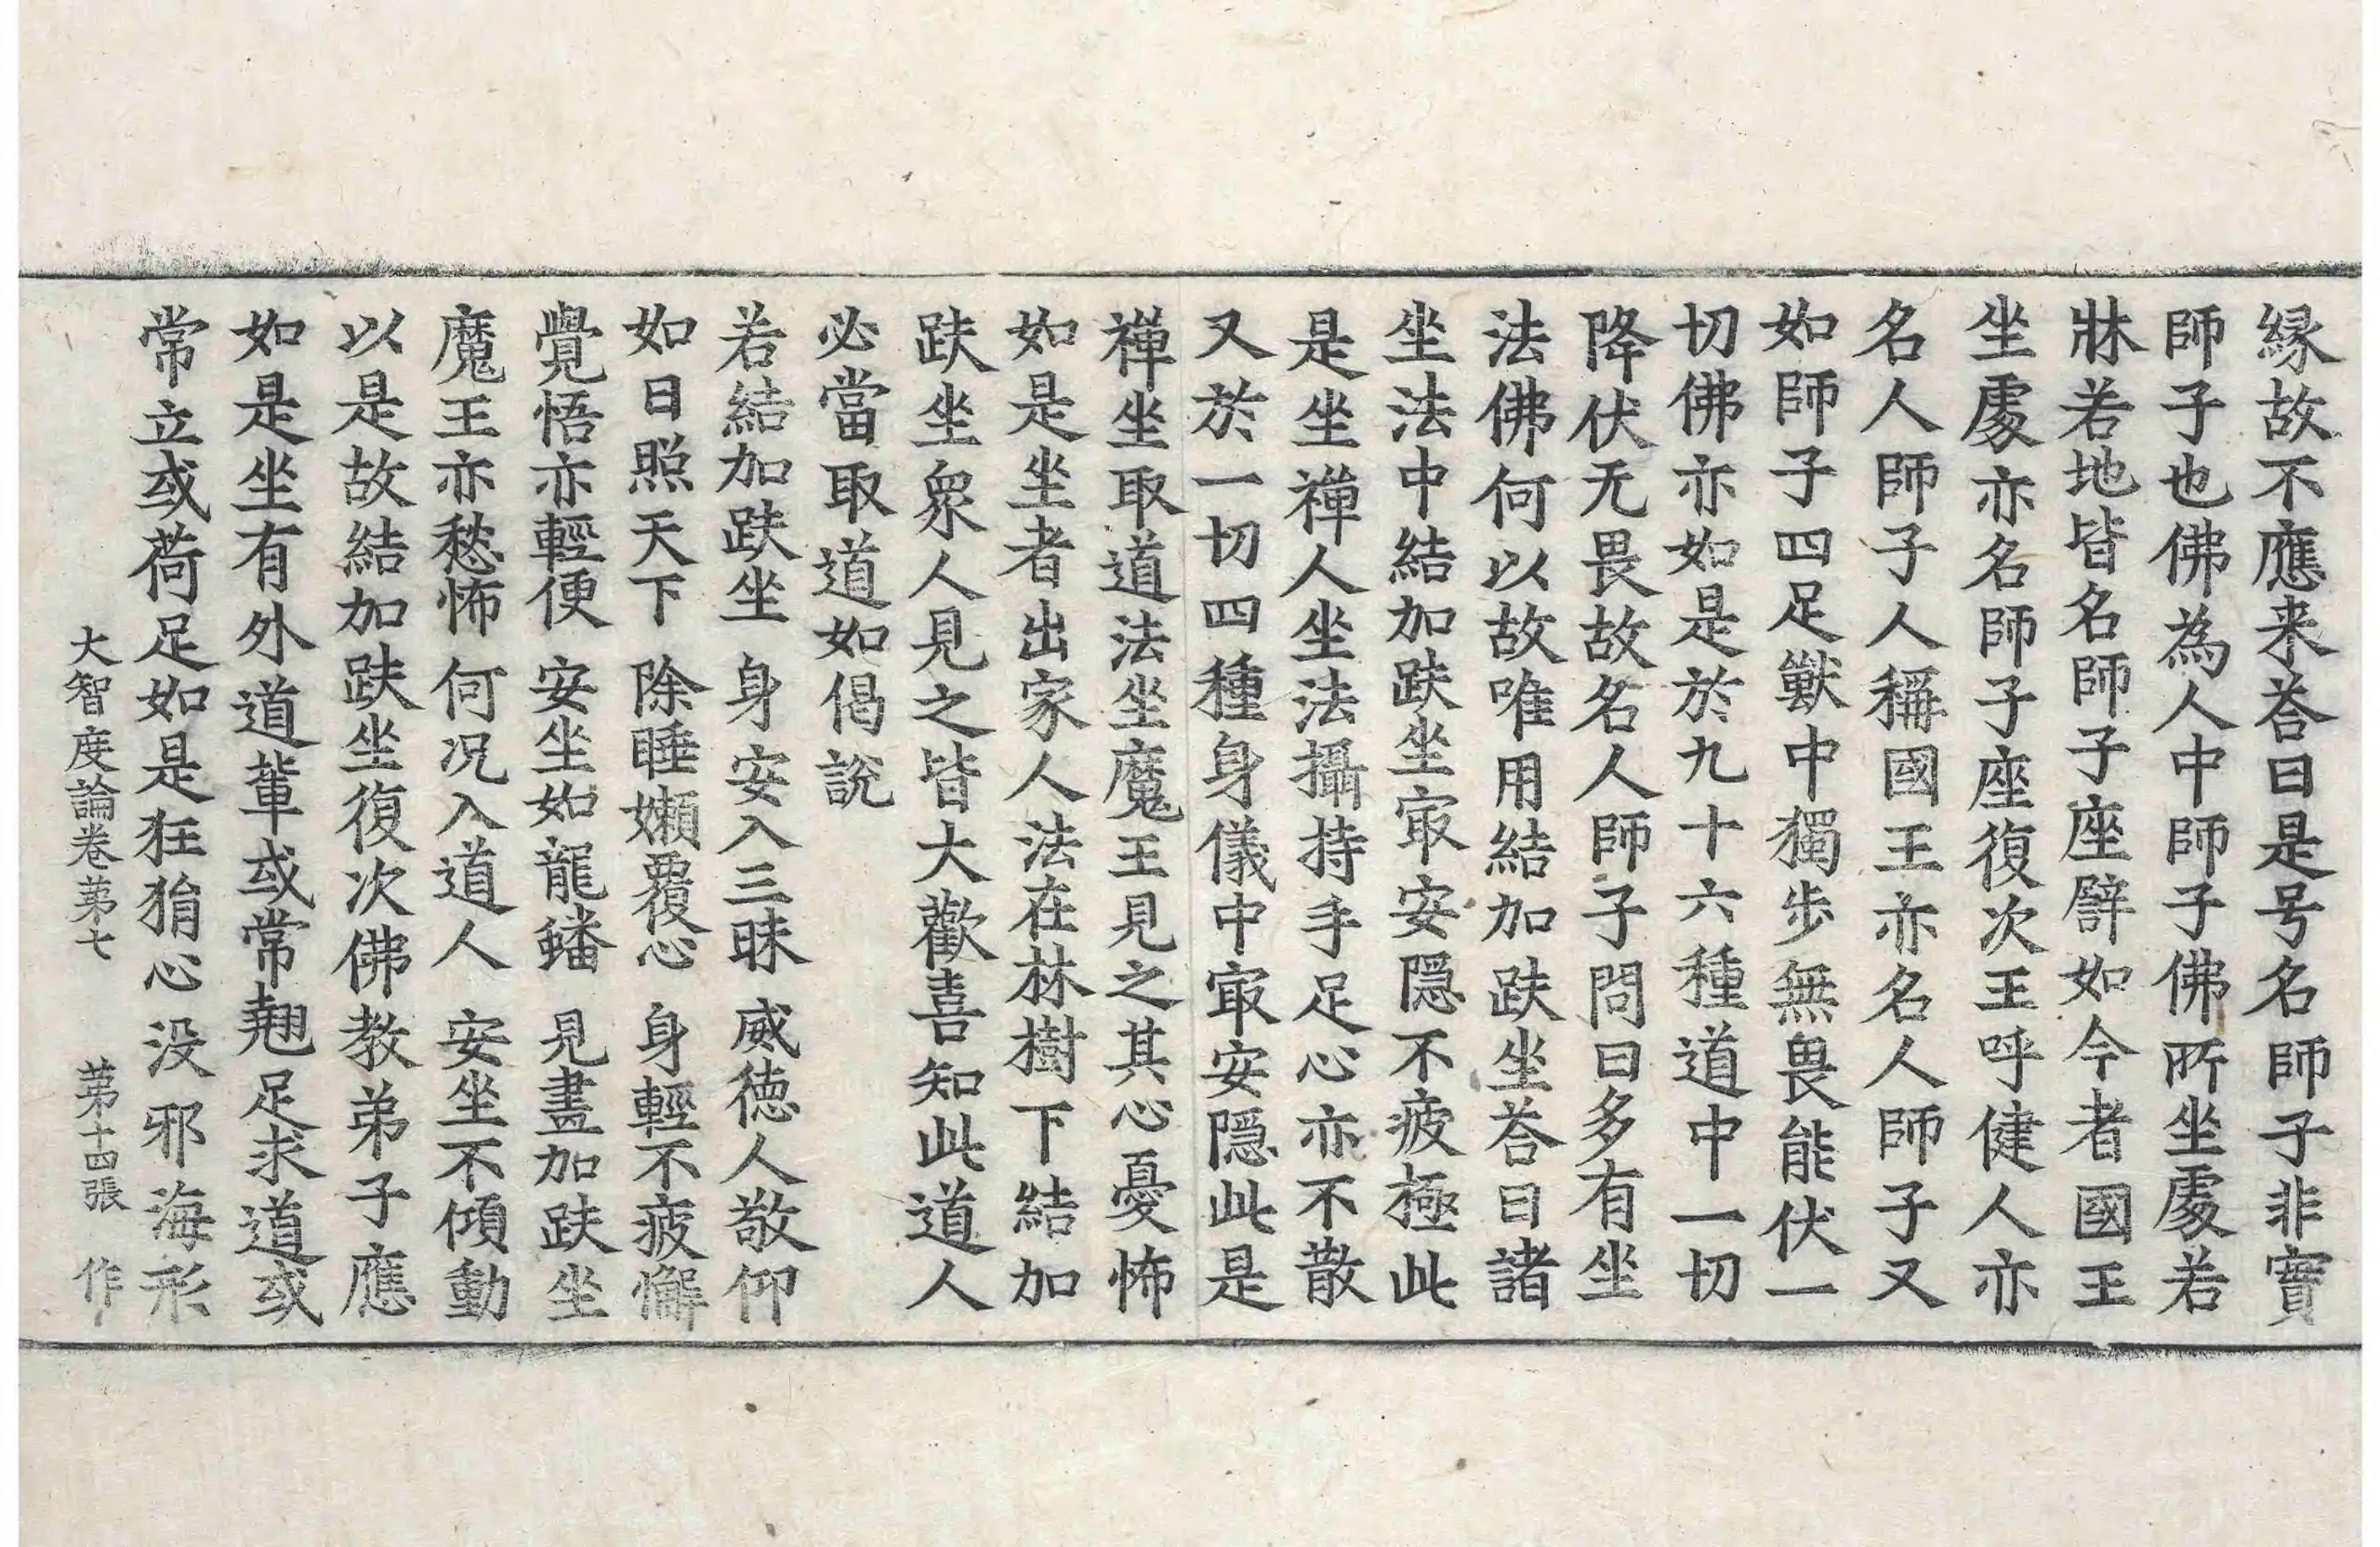 縁故不應来荅曰是号名師子非實
師子也佛為人中師子佛所坐處若
牀若地皆名師子座譬如今者國王
坐處亦名師子座復次王呼健人亦
名人師子人稱國王亦名人師子又
如師子四足獸中獨步無畏能伏一
切佛亦如是於九十六種道中一切
降伏无畏故名人師子問曰多有坐
法佛何以故唯用結加趺坐荅曰諸
坐法中結加趺坐㝡安隠不疲極此
是坐禪人坐法攝持手足心亦不散
又於一切四種身儀中㝡安隠此是
禪坐取道法坐魔王見之其心憂怖
如是坐者出家人法在林樹下結加
趺坐衆人見之皆大歡喜知此道人
必當取道如偈說
若結加趺坐 身安入三昧 威徳人敬仰
如日照天下 除睡嬾覆心 身輕不疲懈
覺悟亦輕便 安坐如龍蟠 見畫加趺坐
魔王亦愁怖 何况入道人 安坐不傾動
以是故結加趺坐復次佛教弟子應
如是坐有外道輩或常翹足求道或
常立或荷足如是狂狷心没邪海形
大智度論卷第七 第十四張 作